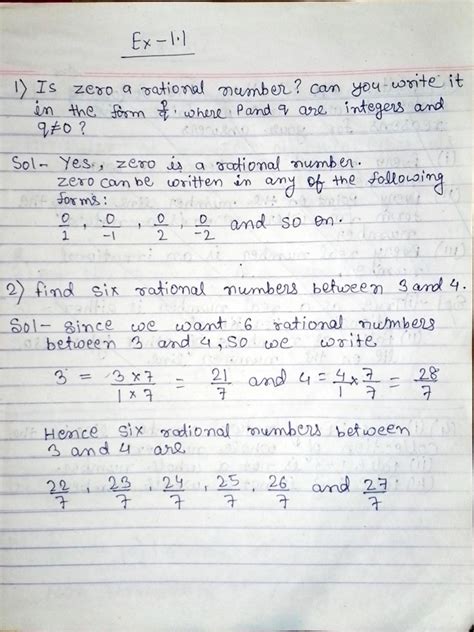 Ex-1.1
1) Is zero a rational number? can you write it
in the form p/q, where P and q are integers and
q≠0?
Sol- Yes, zero is a rational number.
zero can be written in any of the following
forms:
0/1, 0/-1, 0/2, 0/-2 and so on.
2) find six rational numbers between 3 and 4.
Sol- since we want 6 rational numbers
between 3 and 4, so we write
3 = 3×7/1×7 = 21/7 and 4 = 4/1 × 7/7 = 28/7
Hence six rational numbers between
3 and 4 are
22/7, 23/7, 24/7, 25/7, 26/7 and 27/7